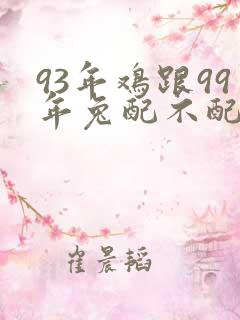 93年鸡跟99
年兔配不配
崔晨韬